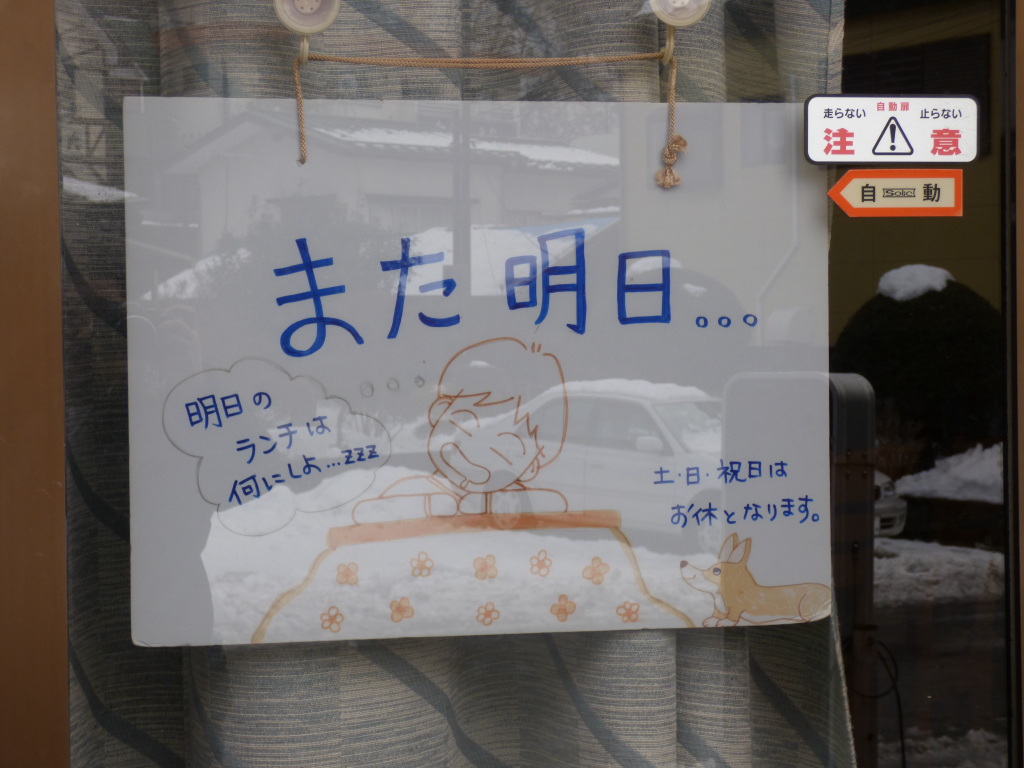 自動扉
走らない 止らない
注 意
自 Solic 動
また明日...
明日の
ランチは
何にしよ...zzz
土・日・祝日は
お休となります。